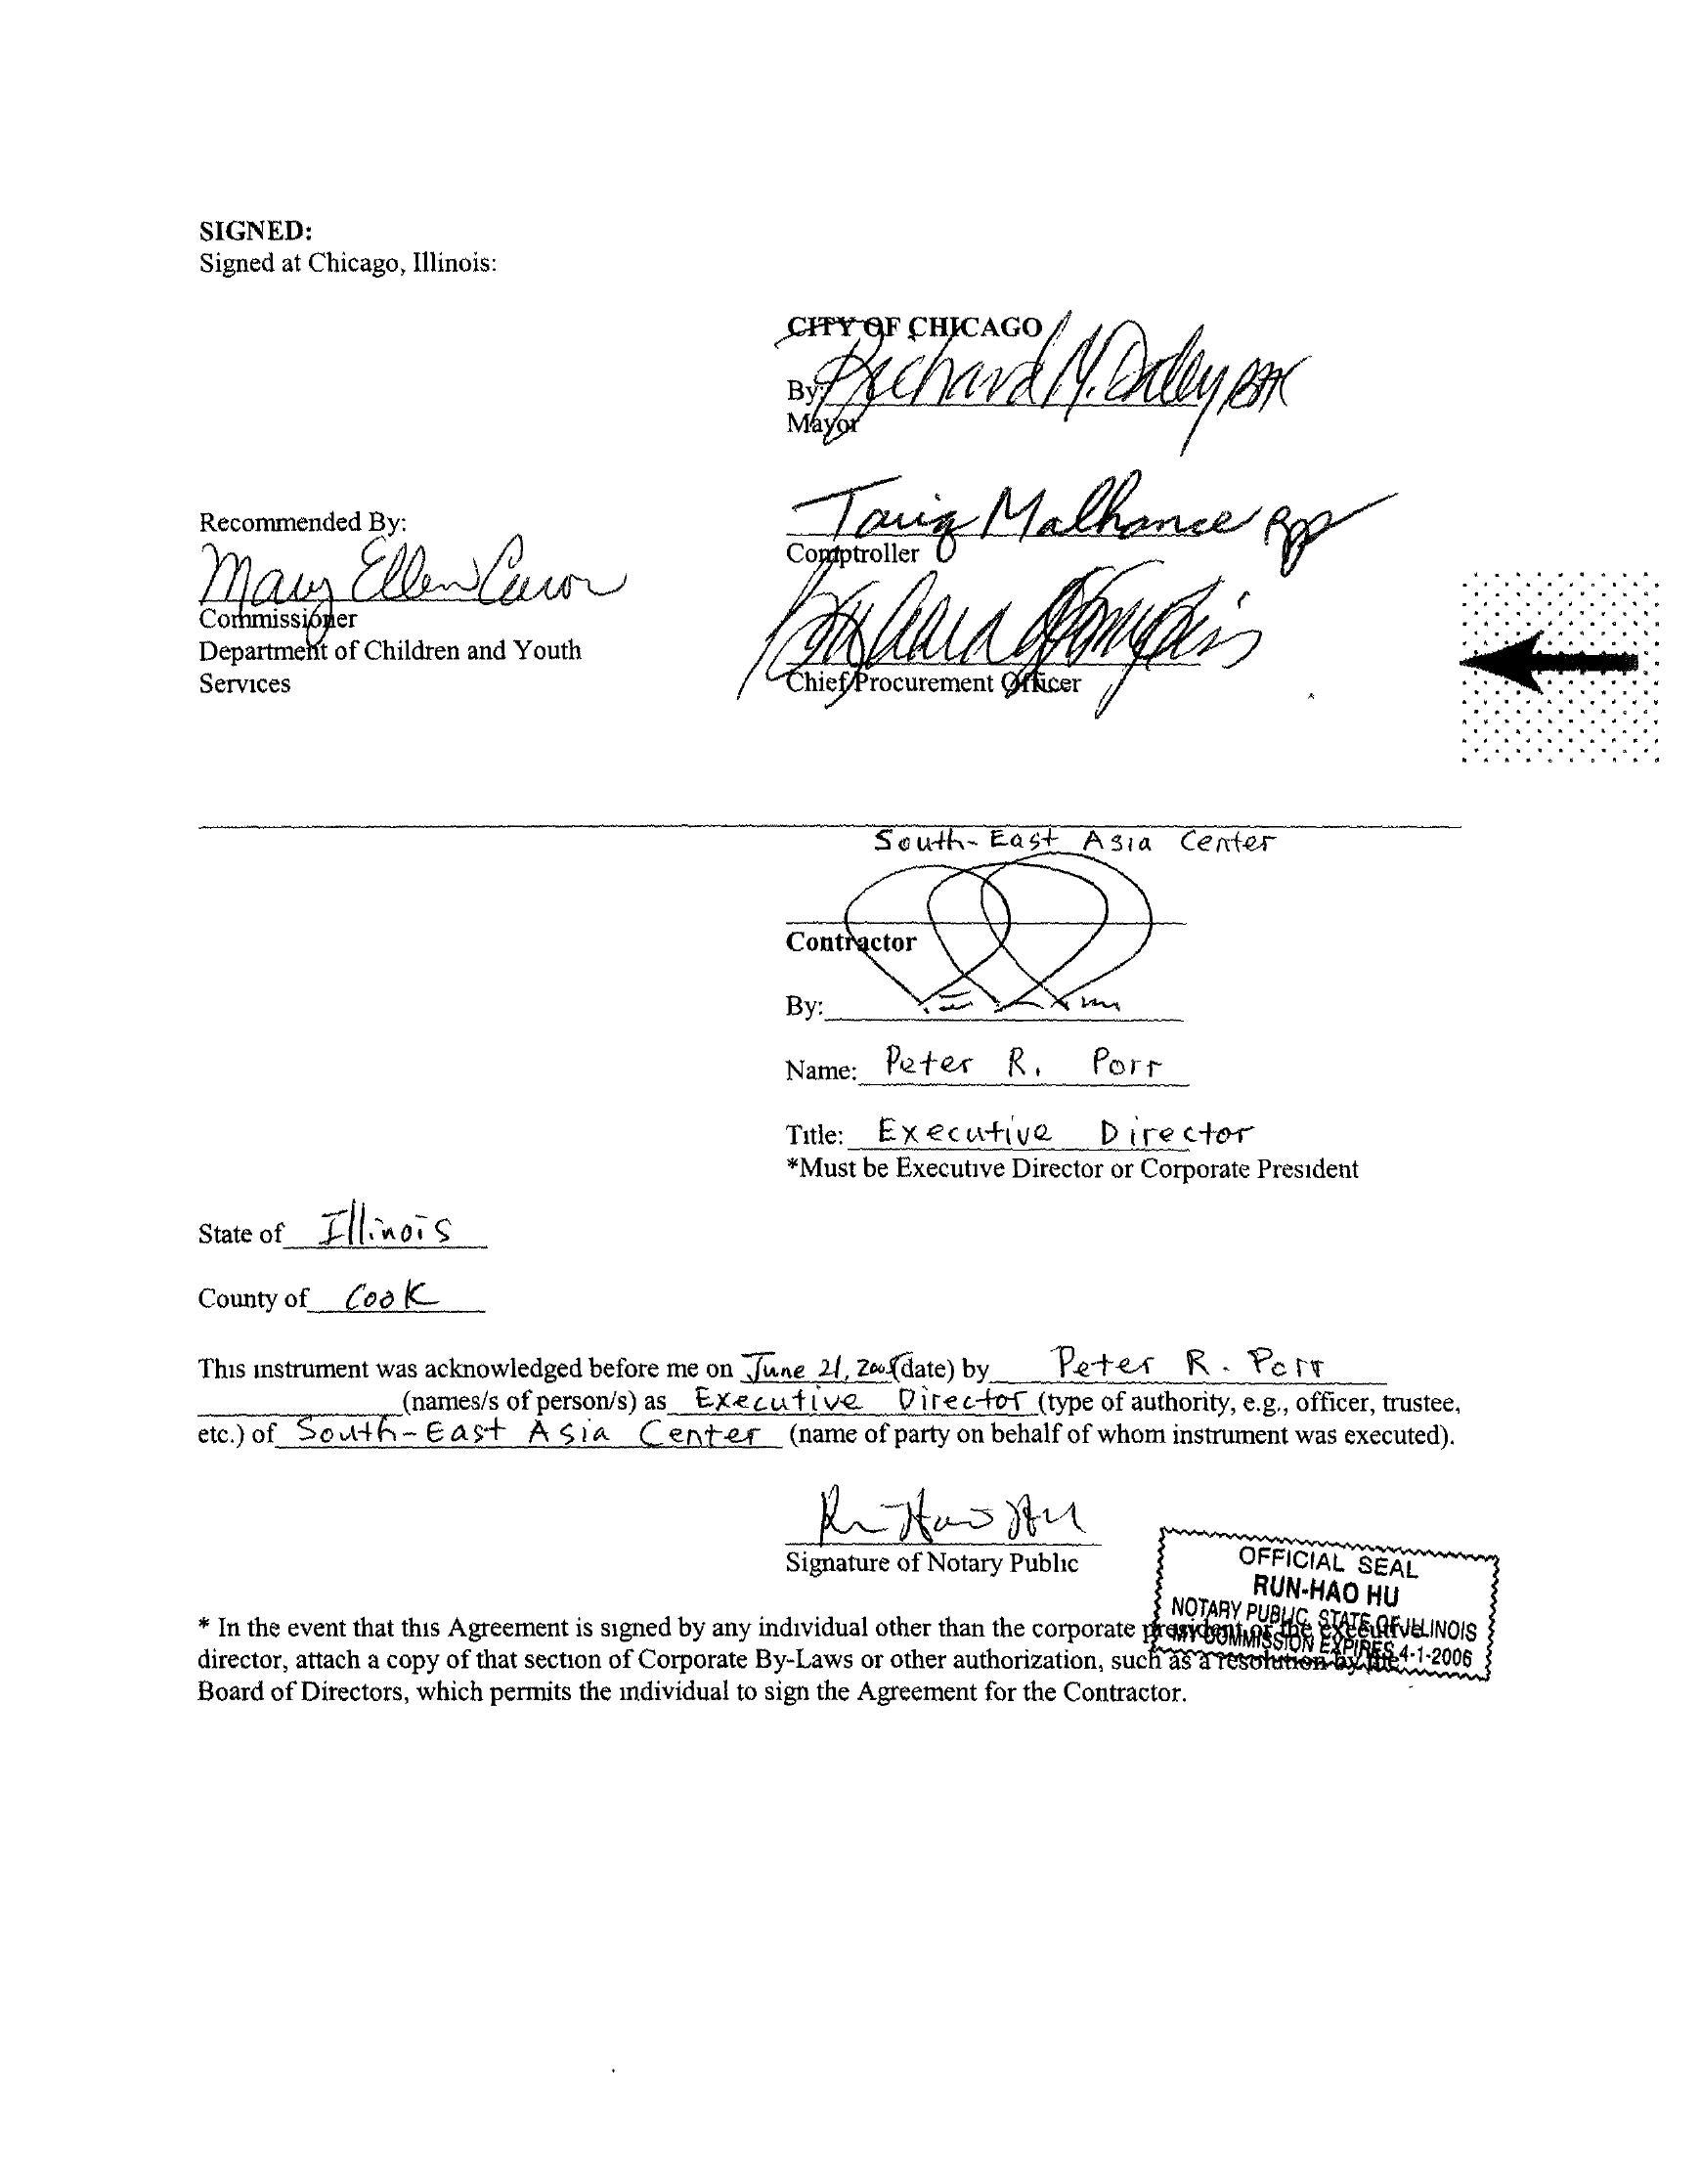 SIGNED:
Signed at Chicago, Illinois:
CITY OF CHICAGO
By: Richard M. Daley
Mayor
Tariq Malhance
Comptroller
Recommended By:
Mary Ellen Caron
Commissioner
Department of Children and Youth
Services
Chief Procurement Officer
South-East Asia Center
Contractor
By:
Name: Peter R. Porr
Title: Executive Director
*Must be Executive Director or Corporate President
State of Illinois
County of Cook
This instrument was acknowledged before me on June 21, 2005 (date) by Peter R. Porr
(names/s of person/s) as Executive Director (type of authority, e.g., officer, trustee,
etc.) of South-East Asia Center (name of party on behalf of whom instrument was executed).
Run-Hao Hu
Signature of Notary Public
OFFICIAL SEAL
RUN-HAO HU
NOTARY PUBLIC, STATE OF ILLINOIS
MY COMMISSION EXPIRES 4-1-2006
* In the event that this Agreement is signed by any individual other than the corporate president or the executive
director, attach a copy of that section of Corporate By-Laws or other authorization, such as a resolution by the
Board of Directors, which permits the individual to sign the Agreement for the Contractor.